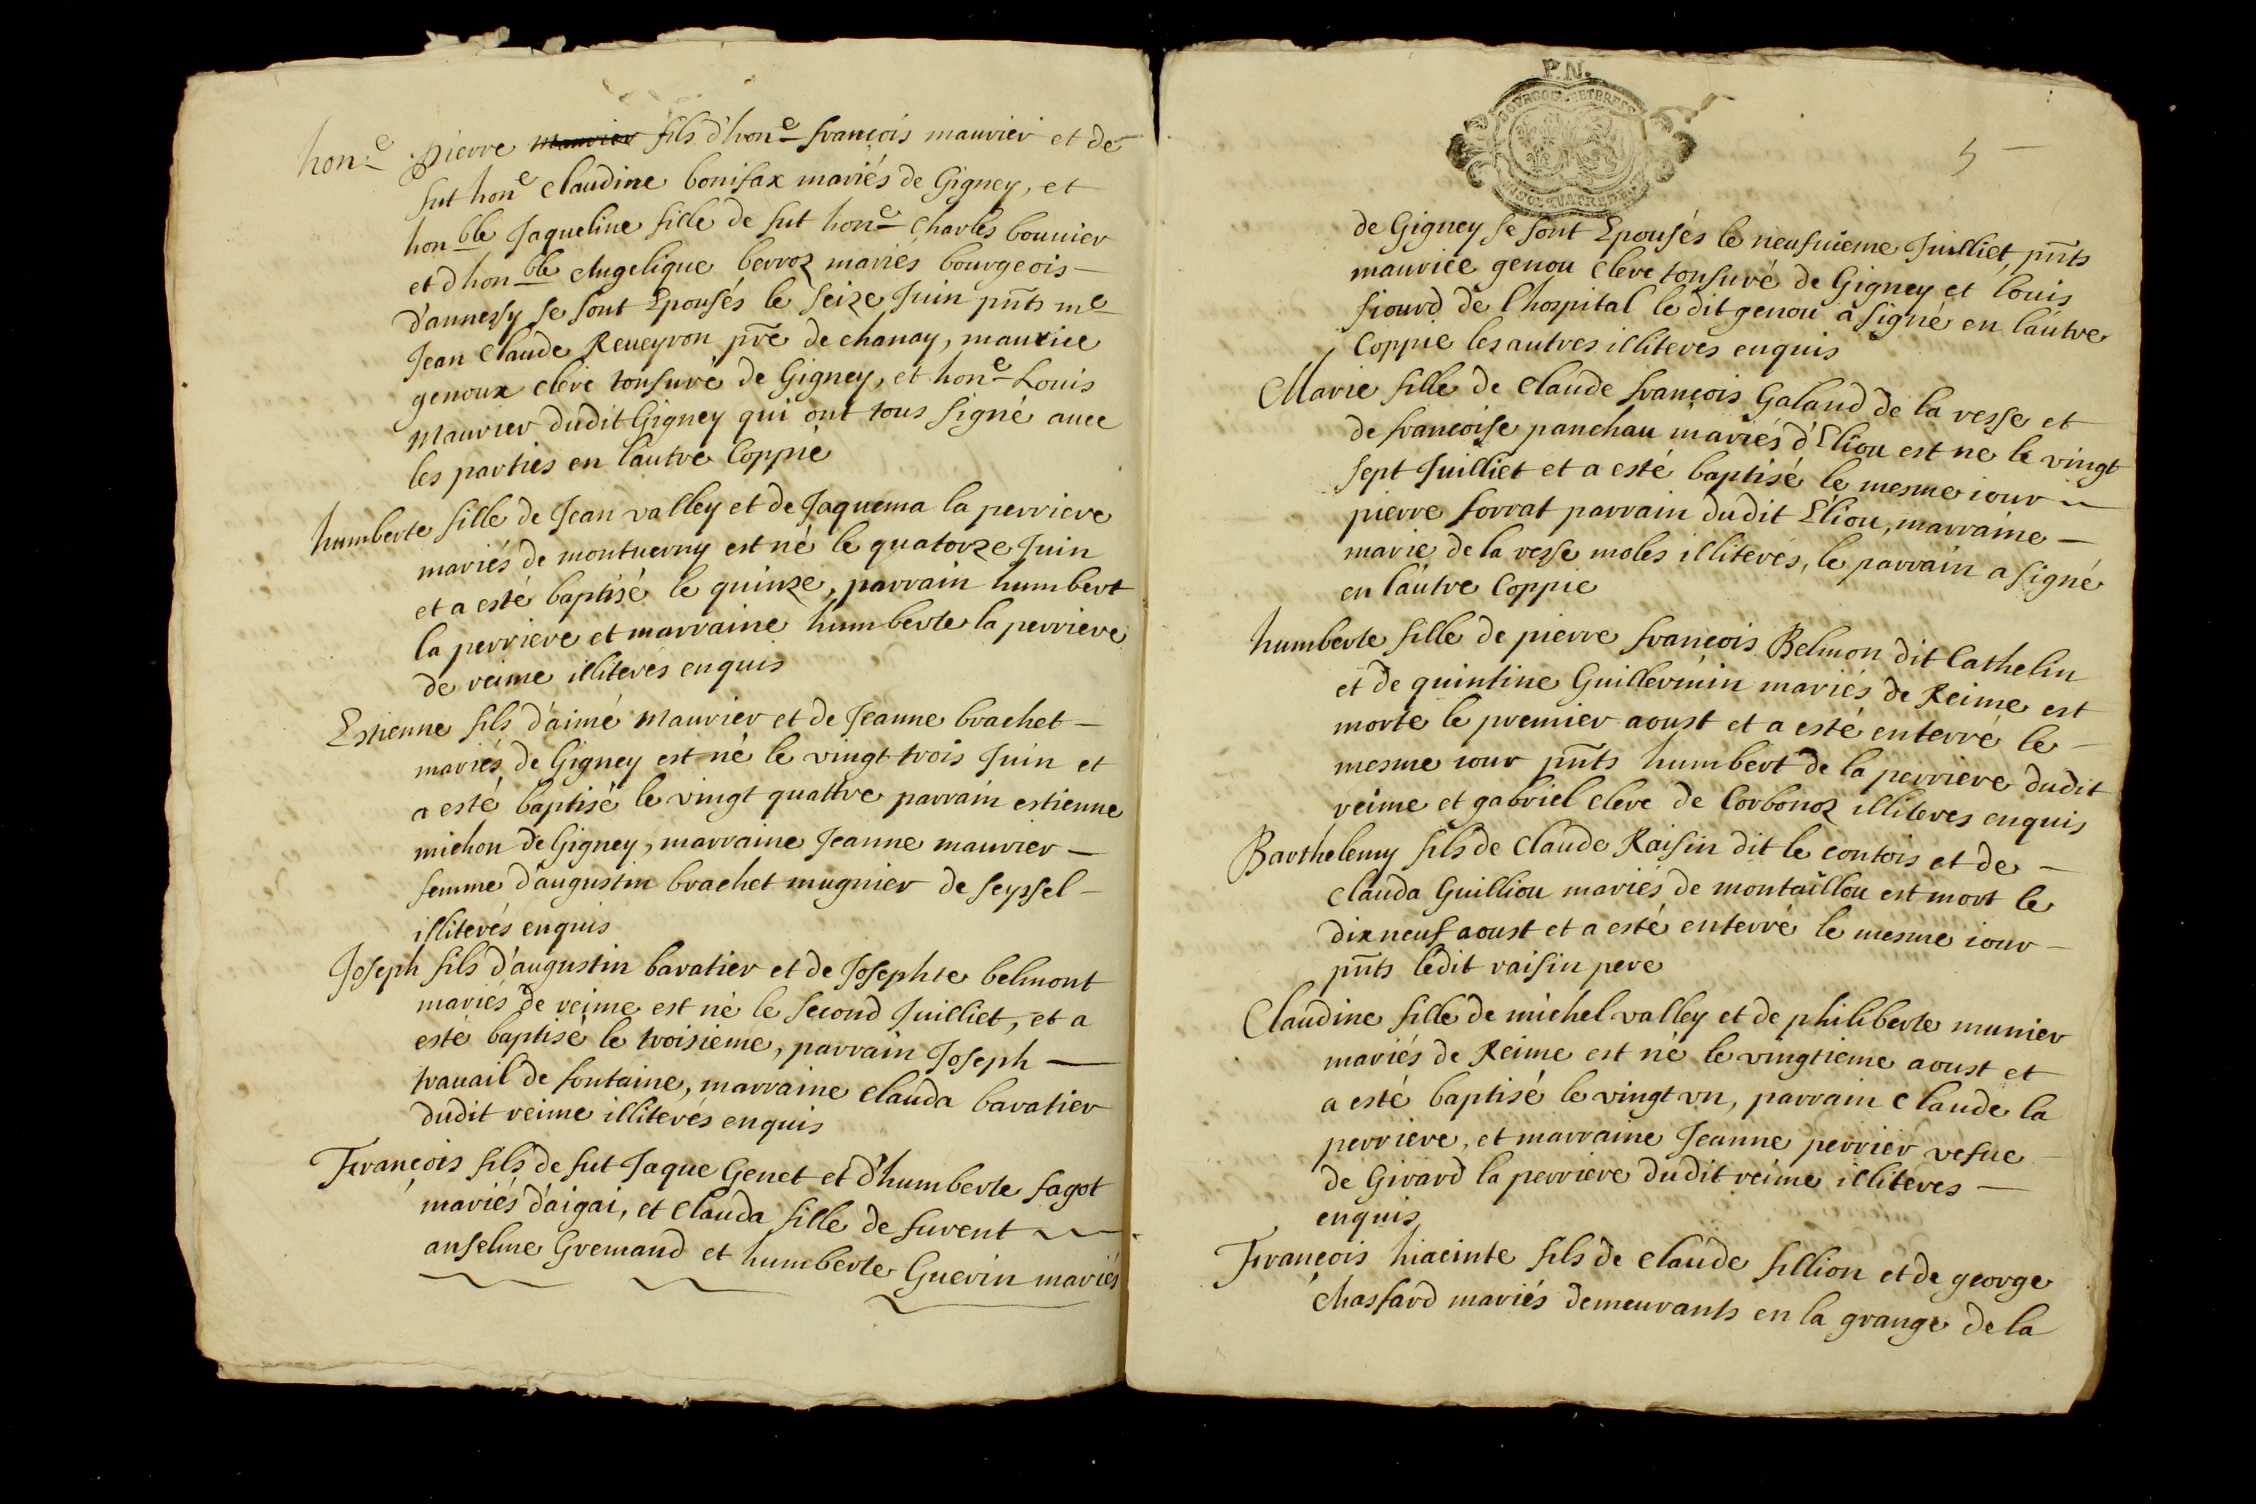 hon.e pierre maurier fils d'hon.e françois maurier et de
fut hon.e claudine bonifax mariés de Gigney, et
hon.ble Jaqueline fille de fut hon.e Charles bouuier
et d'hon.ble Angelique berroz mariés bourgeois
d'annessy se sont Epousés le seize Juin pnts me
Jean Claude Reueyron pre de chanay, maurice
genoux clerc tonsuré de Gigney, et hon.e Louis
Maurier dudit Gigney qui ont tous signé auec
les parties en l'autre Coppie
humberte fille de Jean valley et de Jaquema la perriere
mariés de montuerny est né le quatorze Juin
et a esté baptisé le quinze, parrain humbert
la perriere et marraine humberte la perriere
de reime illiterés enquis
Estienne fils d'aimé Maurier et de Jeanne brachet
mariés de Gigney est né le vingt trois Juin et
a esté baptisé le vingt quattre parrain estienne
michon de Gigney, marraine Jeanne maurier
femme d'augustin brachet mugnier de seyssel
illiterés enquis
Joseph fils d'augustin baratier et de Josephte belmont
mariés de reime est né le second Juilliet, et a
esté baptisé le troisieme, parrain Joseph
trauail de fontaine, marraine clauda baratier
dudit reime illiterés enquis
François fils de fut Jaque Genet et d'humberte fagot
mariés d'aigai, et clauda fille de furent
anselme Gremaud et humberte Guerin mariés
P.N.
5
de Gigney se sont Epousés le neufuieme Juilliet, pnts
maurice genou clerc tonsuré de Gigney et louis
fiourd de l'hospital le dit genou a signé en l'autre
Coppie les autres illiterés enquis
Marie fille de claude françois Galand de la vesse et
de francoise panchau mariés d'Eliou est ne le vingt
sept Juilliet et a esté baptisé le mesme iour
pierre forrat parrain dudit Eliou, marraine
marie de la vesse moles illiterés, le parrain a signé
en l'autre Coppie
humberte fille de pierre françois Belmon dit Cathelin
et de quintine Guillermin mariés de Reime est
morte le premier aoust et a esté enterré le
mesme iour pnts humbert de la perriere dudit
reime et gabriel clerc de Corbonoz illiteres enquis
Barthelemy fils de claude Raisin dit le contois et de
clauda Guilliou mariés de montaillou est mort le
dix neuf aoust et a esté enterré le mesme iour
pnts ledit raisin pere
Claudine fille de michel valley et de philiberte munier
mariés de Reime est né le vingtieme aoust et
a esté baptisé le vingt vn, parrain claude la
perriere, et marraine Jeanne perrier vefue
de Girard la perriere dudit reime illiterés
enquis
François hiacinte fils de claude fillion et de george
Chasfard mariés demeurants en la grange de la